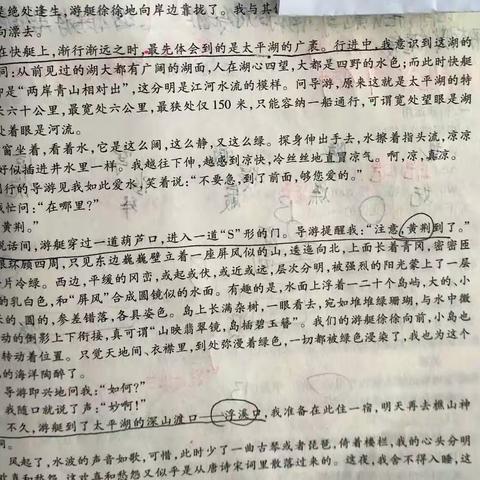 是绝处逢生，游艇徐徐地向岸边靠拢了。我与其
向漂去。
在快艇上，渐行渐远之时，最先体会到的是太平湖的广袤。行进中，我意识到这湖的
同：从前见过的湖大都有广阔的湖面，人在湖心四望，大都是四野的水色；而此时快艇
却是“两岸青山相对出”，这分明是江河水流的模样。问导游，原来这就是太平湖的特
长六十公里，最宽处六公里，最狭处仅150米，只能容纳一船通行，可谓宽处望眼是湖
处着眼是河流。
窗坐着，看着水，它是这么阔，这么静，又这么绿。探身伸出手去，水擦着指头流，凉凉
好似插进井水里一样。我越往下伸，越感到凉快，冷丝丝地直冒凉气。啊，凉，真凉。
同行的导游见我如此爱水，笑着说：“不要急，到了前面，够您爱的。”
我忙问：“在哪里？”
“黄荆。”
说话间，游艇穿过一道葫芦口，进入一道“S”形的门。导游提醒我：“注意，黄荆到了。”
眼环顾四周，只见东边巍巍壁立着一座屏风似的山，逶迤向北，上面长着青冈，密密匝
片冷绿。西边，平缓的冈峦，或起或伏，或近或远，层次分明，被强烈的阳光蒙上了一层
的乳白色，和“屏风”合成圆镜似的水面。有趣的是，水面上浮着一二十个岛屿，大的、小
长的、圆的，参差错落，各具姿色。岛上长满杂树，一眼看去，宛如堆堆绿珊瑚，与水中微
动的倒影上下衔接，真可谓“山映翡翠镜，岛插碧玉簪”。我们的游艇徐徐向前，小岛也
转动着位置。只觉天地间、衣襟里，到处弥漫着绿色，一切都被绿色浸染了，我也为这个
的海洋陶醉了。
导游即兴地问我：“如何？”
我随口就说了声：“妙啊！”
不久，游艇到了太平湖的深山渡口——浮溪口，我准备在此住一宿，明天再去樵山神
洞。
风起了，水波的声音如歌，可惜，此时少了一曲古琴或者琵琶，倚着楼栏，我的心头分明
欢喜和愁怨，这欢喜和愁怨又似乎是从唐诗宋词里散落过来的。这夜，我舍不得入睡，这